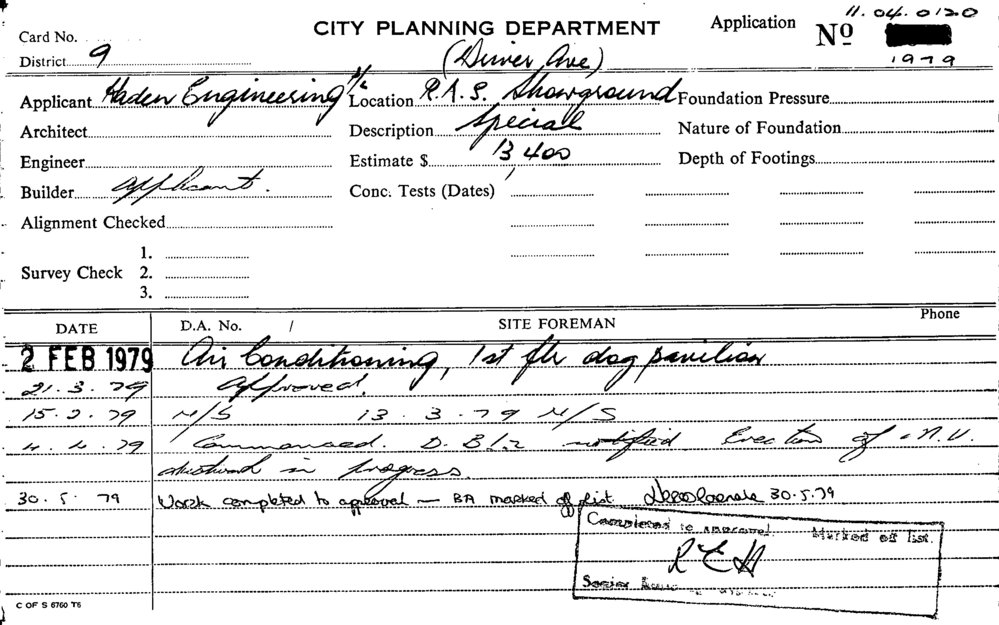 Card No.
CITY PLANNING DEPARTMENT
Application Nº 11.04.0120
1979
District 9
(Driver Ave)
Applicant Haden Engineering P/L
Location R.A.S. Showground
Foundation Pressure
Architect
Description Special
Nature of Foundation
Engineer
Estimate $ 13,400
Depth of Footings
Builder Applicant.
Conc. Tests (Dates)
Alignment Checked
Survey Check
1.
2.
3.
DATE D.A. No. / SITE FOREMAN Phone
2 FEB 1979 Air Conditioning, 1st flr dog pavilion
21.3.79 Approved.
15.2.79 M/S 13.3.79 M/S
4.4.79 Commenced. notified Erection of
ductwork in progress.
30.5.79 Work completed to approval — BA marked off list. 30.5.79
Completed to approval. Marked off list.
R E H
Senior
C OF S 6760 T6